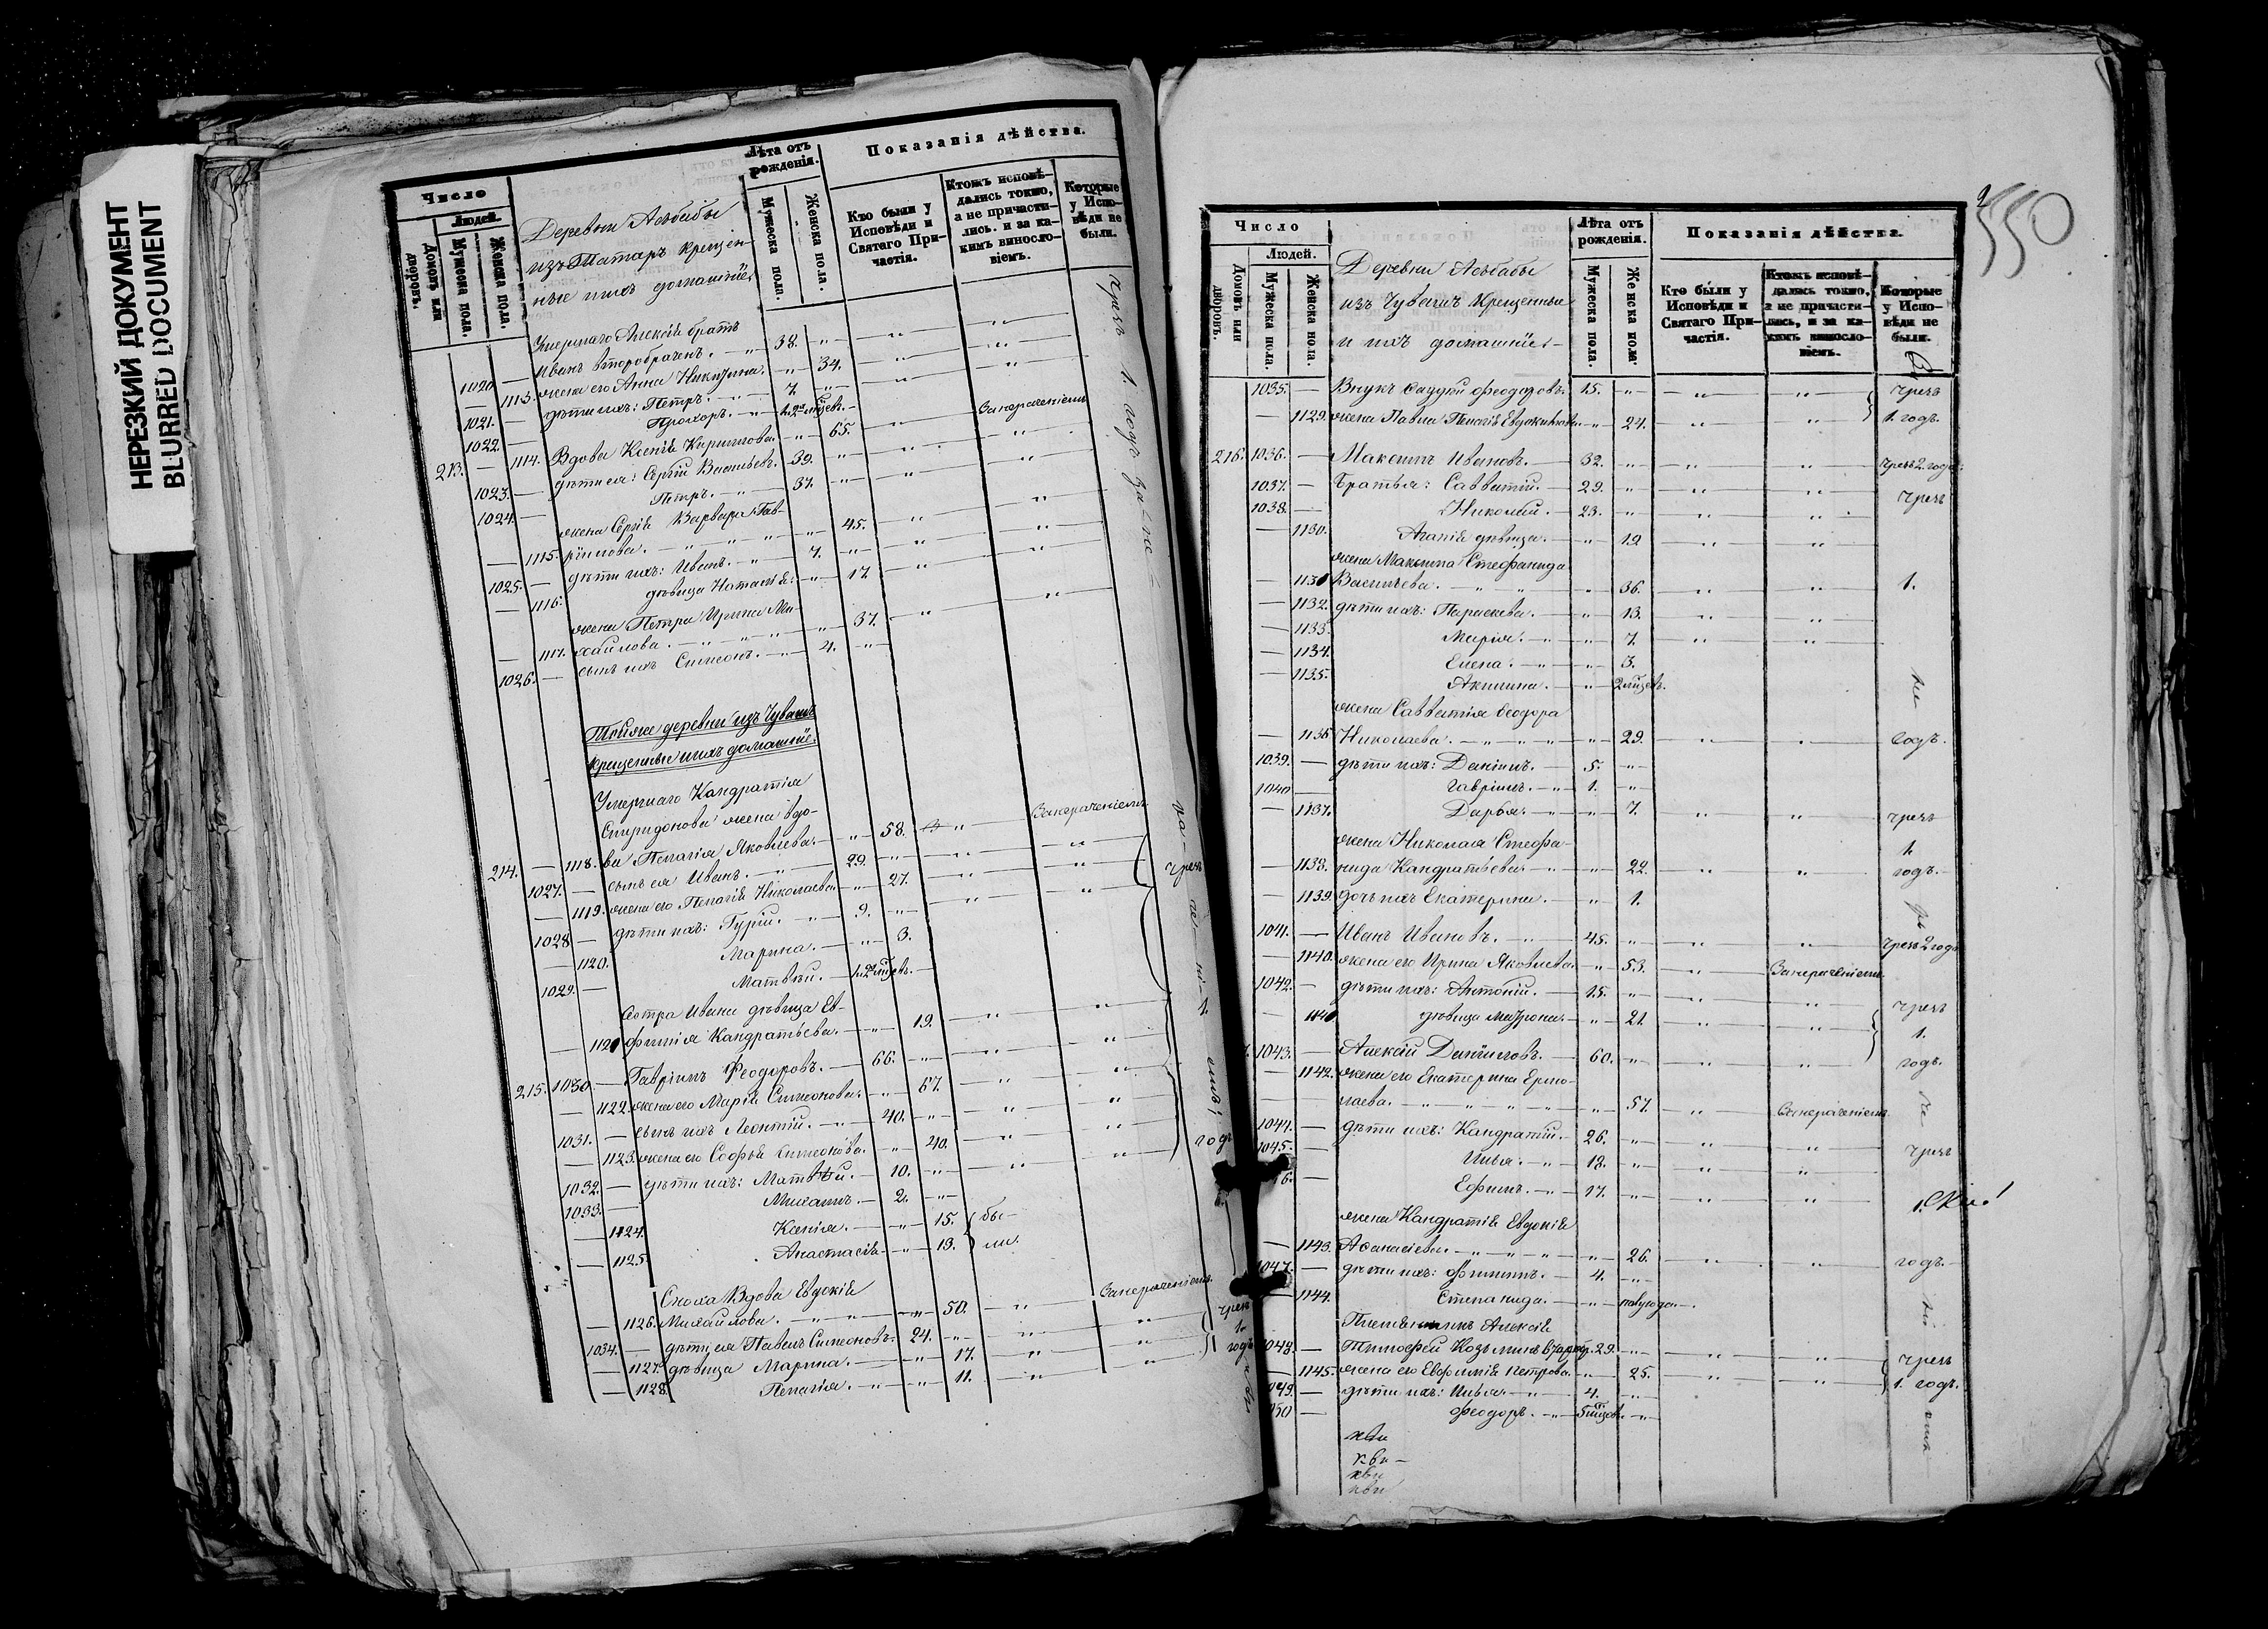 НЕРЕЗКИЙ ДОКУМЕНТ
BLURRED DOCUMENT
Число
Людей.
Домовъ или дворовъ.
Мужеска пола.
Женска пола.
Деревни Асъбабы
изъ Татаръ крещен-
ные и ихъ домашніе
Лѣта отъ рожденія.
Мужеска пола.
Женска пола.
Показанія дѣйства.
Кто были у Исповѣди и Святаго При-частія.
Ктожъ исповѣ-дались токмо, а не причасти-лись. и за ка-кимъ винослo-віемъ.
Которые у Испо-вѣди не были.
Умершаго Алексія братъ
1020. — Иванъ второбраченъ. 38.
— 1113. жена его Анна Никитина. 34.
1021. — дѣти ихъ: Петръ. 7.
1022. — Прохоръ.
213. — 1114. Вдова Ксенія Кириллова. 65. Занераченіемъ
1023. — дѣти ея: Сергій Васильевъ. 39.
1024. — Петръ. 37.
жена Сергія Варвара Гав-
— 1115. ріилова. 45.
1025. — дѣти ихъ: Иванъ. 7.
— 1116. дѣвица Наталія. 17.
жена Петра Ирина Ми-
— 1117. хайлова. 37.
1026. — сынъ ихъ Симеонъ. 4.
Тойже деревни изъ Чувашъ
крещенные и ихъ домашніе.
Умершаго Кандратія
Спиридонова жена вдо-
214. — 1118. ва Пелагія Яковлева. 58. Занераченіемъ
1027. — сынъ ея Иванъ. 29.
— 1119. жена его Пелагія Николаева. 27. чрезъ
1028. — дѣти ихъ: Гурій. 9.
— 1120. Марина. 3.
1029. — Матвѣй.
Сестра Ивана дѣвица Ев-
— 1121 фимія Кандратьева. 19. 1.
215. 1030. — Гавріилъ Феодоровъ. 66.
— 1122. жена его Марія Симеонова. 67.
1031. — сынъ ихъ Леонтій. 40.
— 1123. жена его Софья Симеонова. 40. годъ
1032. — дѣти ихъ: Матвѣй. 10.
1033. — Михаилъ. 2.
— 1124. Ксенія. 15. бы-
— 1125. Анастасія. 13. ли.
Сноха Вдова Евдокія
— 1126. Михайлова. 50. Занераченіемъ
1034. — дѣти ея Павелъ Симеоновъ. 24. чрезъ
— 1127. дѣвица Марина. 17. 1. годъ
— 1128. Пелагія. 11.
550
Число
Людей.
Домовъ или дворовъ.
Мужеска пола.
Женска пола.
Деревни Асъбабы
изъ Чувашъ Крещенные
и ихъ домашніе
Лѣта отъ рожденія.
Мужеска пола.
Женска пола.
Показанія дѣйства.
Кто были у Исповѣди и Святаго При-частія.
Ктожъ исповѣ-дались токмо, а не причасти-лись, и за ка-кимъ винослo-віемъ.
Которые у Испо-вѣди не были.
1035. — Внукъ Феодоровъ. 15. чрезъ
— 1129. жена Павла Пелагія Евдокимова. 24. 1. годъ.
216. 1036. — Максимъ Ивановъ. 32. чрезъ 2. года
1037. — Братья: Савватій. 29. чрезъ
1038. — Николай. 23.
— 1130. Агапія дѣвица. 19
жена Максима Стефанида
— 1131 Васильева. 36. 1.
— 1132. дѣти ихъ: Параскева. 13.
— 1133. Марія. 7.
— 1134. Елена. 3.
— 1135. Акилина. 2 мѣсяцевъ.
жена Савватія Феодора
— 1136 Николаева. 29. годъ.
1039. — дѣти ихъ: Даніилъ. 5.
1040 — Гавріилъ. 1.
— 1137. Дарья. 7. чрезъ
жена Николая Стефа- 1.
— 1138. нида Кандратьева. 22. годъ.
— 1139. дочь ихъ Екатерина. 1.
1041. — Иванъ Ивановъ. 45. чрезъ 2 года
— 1140. жена его Ирина Яковлева. 53. Занераченіемъ
1042. — дѣти ихъ: Антоній. 15. чрезъ
— 1141 дѣвица Матрона. 21. 1.
1043. — Алексій Даниловъ. 60. годъ.
— 1142. жена его Екатерина Ермо-
лаева. 57. Занераченіемъ
1044. — дѣти ихъ: Кандратій. 26. чрезъ
1045. — Илья. 18.
— Ефимъ. 17. 1.
жена Кандратія Евдокія
— 1143. Афанасіева. 26. годъ.
1047. — дѣти ихъ: Филиппъ. 4.
— 1144. Степанида. полугода.
Племянникъ Алексія
1048. — Тимофей Козьминъ 29. чрезъ
— 1145. жена его Евфимія Петрова. 25. 1. годъ.
1049. — дѣти ихъ: Илья. 4.
1050 — Феодоръ. 5 мѣсяцевъ.